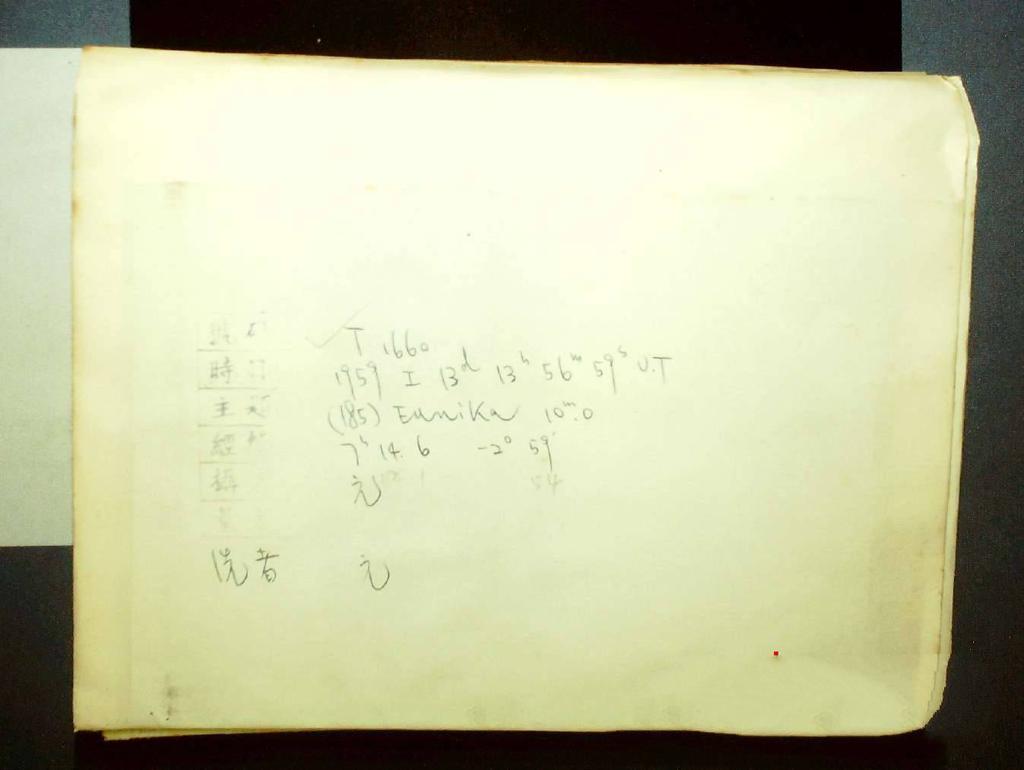 T 1660
時 1959 I 13ᵈ 13ʰ 56ᵐ 59ˢ U.T
主 (185) Eunika 10ᵐ.0
經 7ʰ 14.6 -2° 59'
攝 元
洗者 元